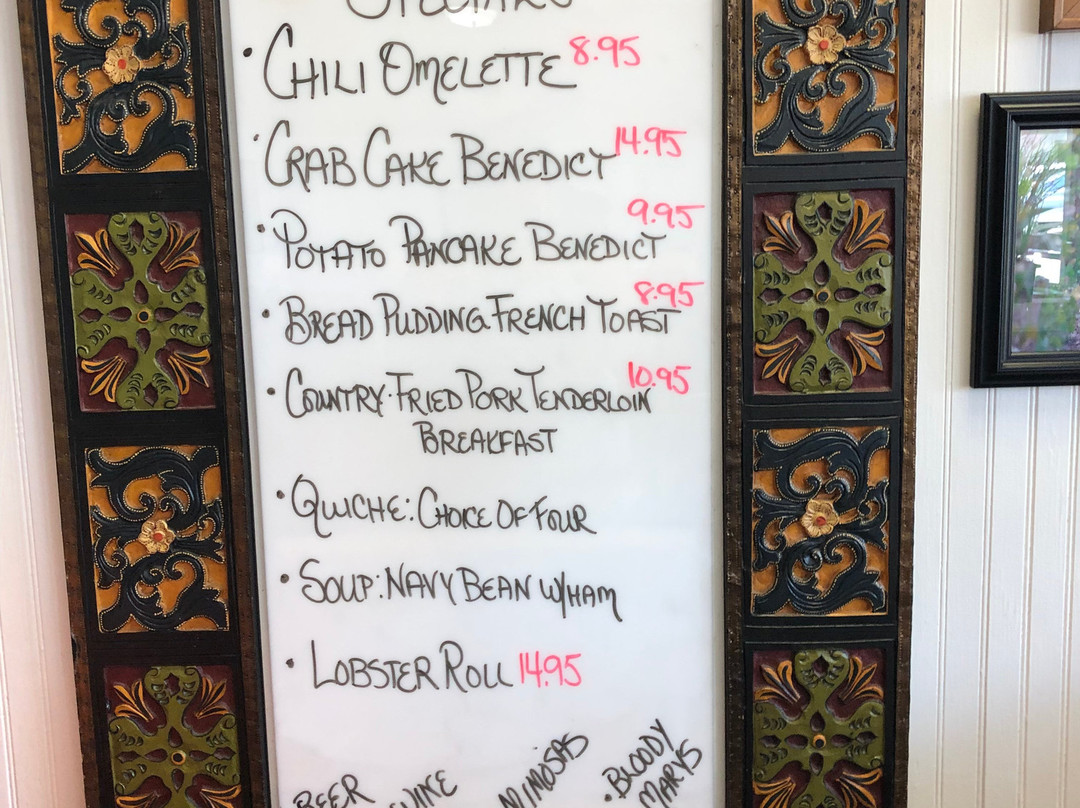 SPECIALS
• CHILI OMELETTE 8.95
• CRAB CAKE BENEDICT 14.95
• POTATO PANCAKE BENEDICT 9.95
• BREAD PUDDING FRENCH TOAST 8.95
• COUNTRY-FRIED PORK TENDERLOIN 10.95
BREAKFAST
• QUICHE: CHOICE OF FOUR
• SOUP: NAVY BEAN W/HAM
• LOBSTER ROLL 14.95
BEER WINE MIMOSAS • BLOODY
MARYS